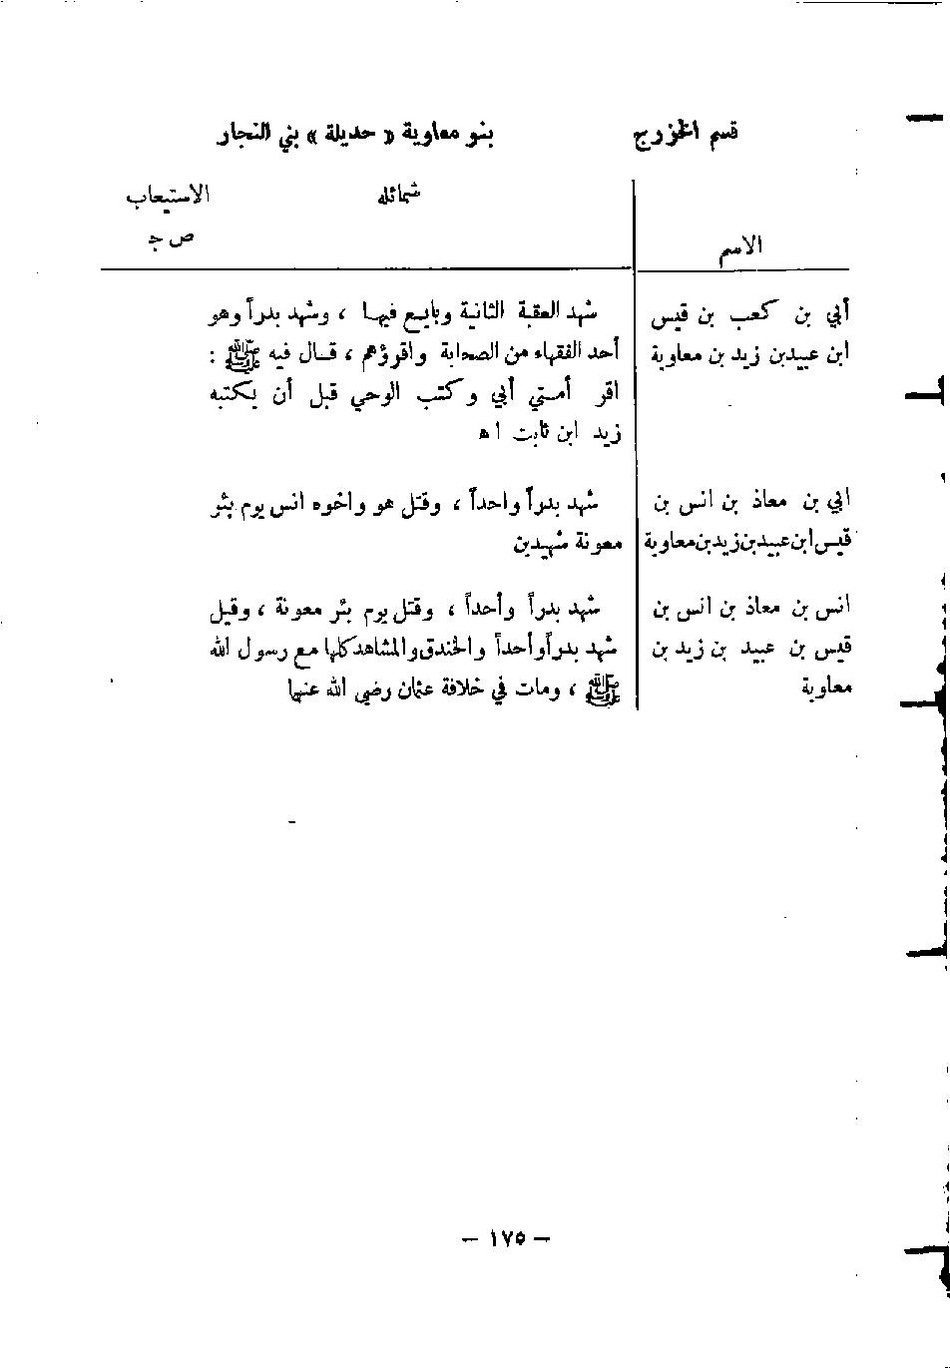 قسم الخزرج
بنو معاوية « حديلة » بني النجار
الاسم
شمائله
الاستيعاب
ص ج
أبي بن كعب بن قيس
ابن عبيدبن زيد بن معاوية
شهد العقبة الثانية وبايـع فيهـا ، وشهد بدراً وهو
أحد الفقهاء من الصحابة واقرؤهم ، قـال فيه ﷺ :
اقر أمـتي أبي وكتب الوحي قبل أن يكتبه
زيد ابن ثابت اه
ابي بن معاذ بن انس بن
قيس ابن عبيدبن زيدبن معاوية
شهد بدراً واحداً ، وقتل هو واخوه انس يوم بئر
معونة شهيدين
انس بن معاذ بن انس بن
قيس بن عبيد بن زيد بن
معاوية
شهد بدراً وأحداً ، وقتل يوم بئر معونة ، وقيل
شهد بدراً وأحداً والخندق والمشاهد كلها مع رسول الله
ﷺ ، ومات في خلافة عثمان رضي الله عنهما
– ١٧٥ –